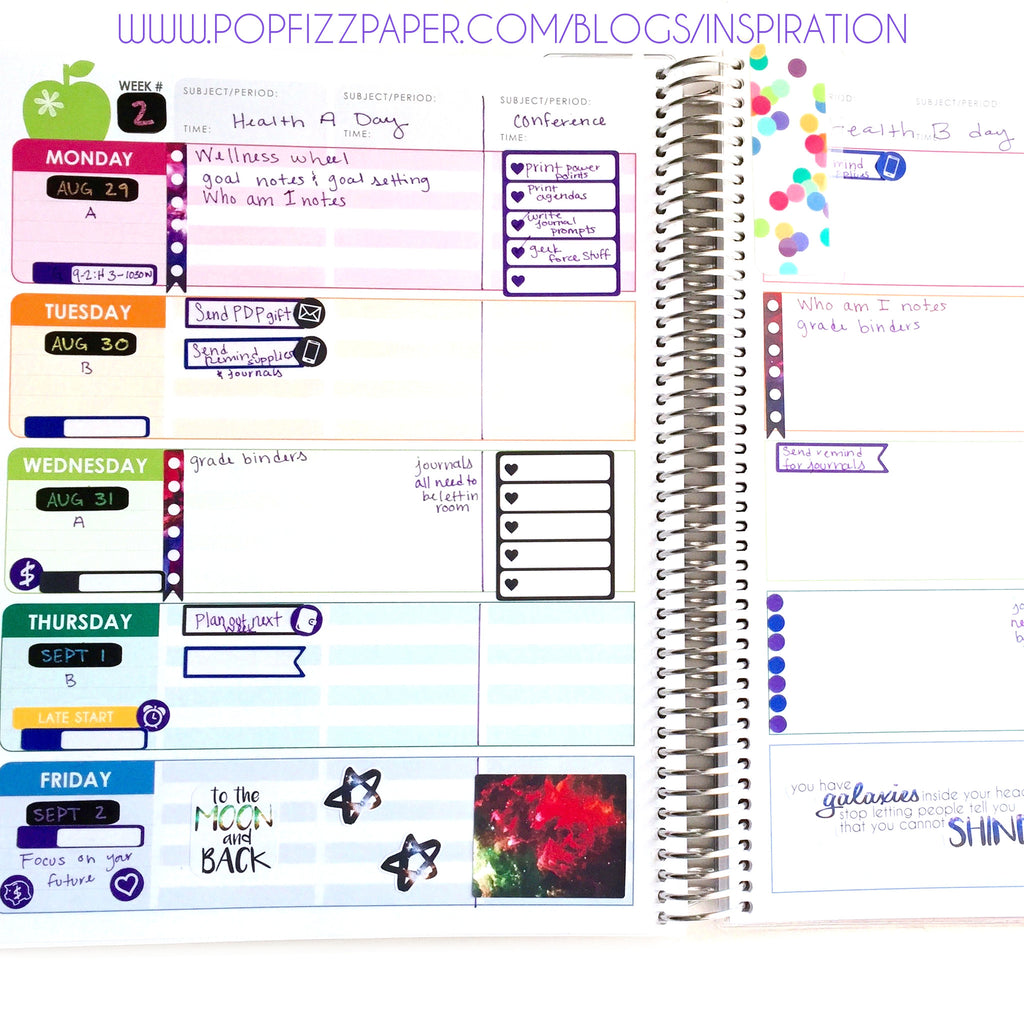 WWW.POPFIZZPAPER.COM/BLOGS/INSPIRATION
WEEK #
2
SUBJECT/PERIOD:
SUBJECT/PERIOD:
SUBJECT/PERIOD:
Health A Day
conference
TIME:
TIME:
TIME:
MONDAY
AUG 29
A
Wellness wheel
goal notes & goal setting
Who am I notes
print power
points
Print
agendas
write
journal
prompts
geek
force stuff
TUESDAY
AUG 30
B
Send PDP gift
Send
Remind supplies
& journals
WEDNESDAY
AUG 31
A
$
grade binders
journals
all need to
be left in
room
THURSDAY
SEPT 1
B
LATE START
Plan out next
week
FRIDAY
SEPT 2
Focus on your
future
$
to the
MOON
and
BACK
SUBJECT/PERIOD:
ealth B day
Who am I notes
grade binders
Send remind
for journals
you have
galaxies inside your head
stop letting people tell you
that you cannot SHINE